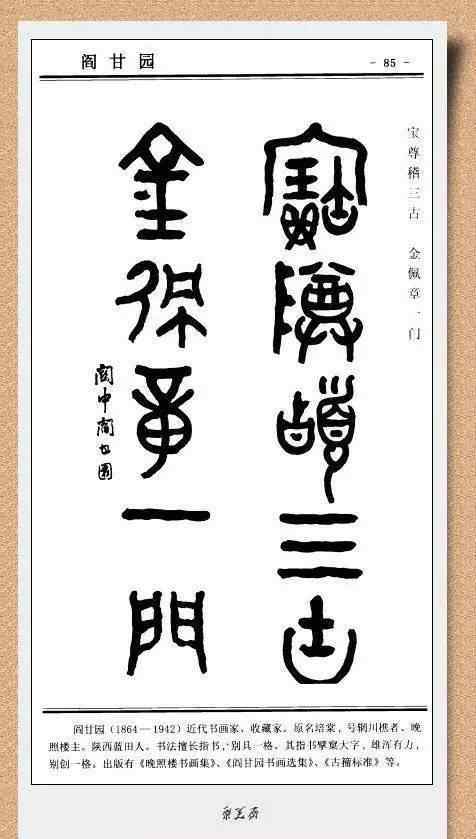 阎甘园
- 85 -
宝尊稽三古 金佩章一门
寶尊 三古
金 章一門
關中閻甘園
阎甘园（1864—1942）近代书画家、收藏家。原名培棠，号辋川樵者、晚
照楼主。陕西蓝田人。书法擅长指书，别具一格。其指书擘窠大字，雄浑有力，
别创一格。出版有《晚照楼书画集》、《阎甘园书画选集》、《古籀标准》等。